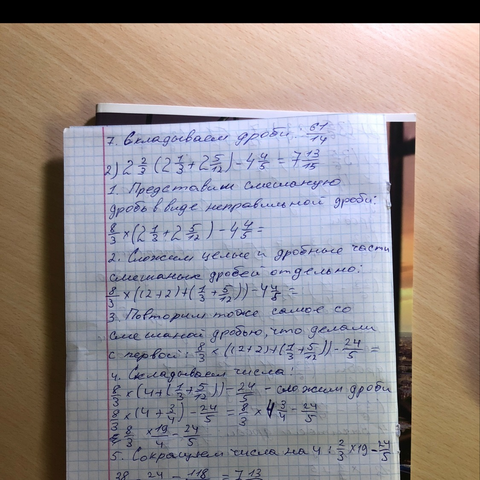 7. Складываем дроби: 61/14
2) 2 2/3 (2 1/3 + 2 5/12) - 4 4/5 = 7 13/15
1. Представим смешаную
дробь в виде неправильной дроби:
8/3 × (2 1/3 + 2 5/12) - 4 4/5 =
2. Сложим целые и дробные части
смешаных дробей отдельно:
8/3 × ((2+2) + (1/3 + 5/12)) - 4 4/5 =
3. Повторим тоже самое со
смешаной дробью, что делали
с первой: 8/3 × ((2+2) + (1/3 + 5/12)) - 24/5 =
4. Складываем числа:
8/3 × (4 + (1/3 + 5/12)) - 24/5 - сложим дроби
8/3 × (4 + 3/4) - 24/5 = 8/3 × 4 3/4 - 24/5
= 8/3 × 19/4 - 24/5
5. Сокращаем числа на 4: 2/3 × 19 - 24/5
38 - 24 = 118 = 7 13